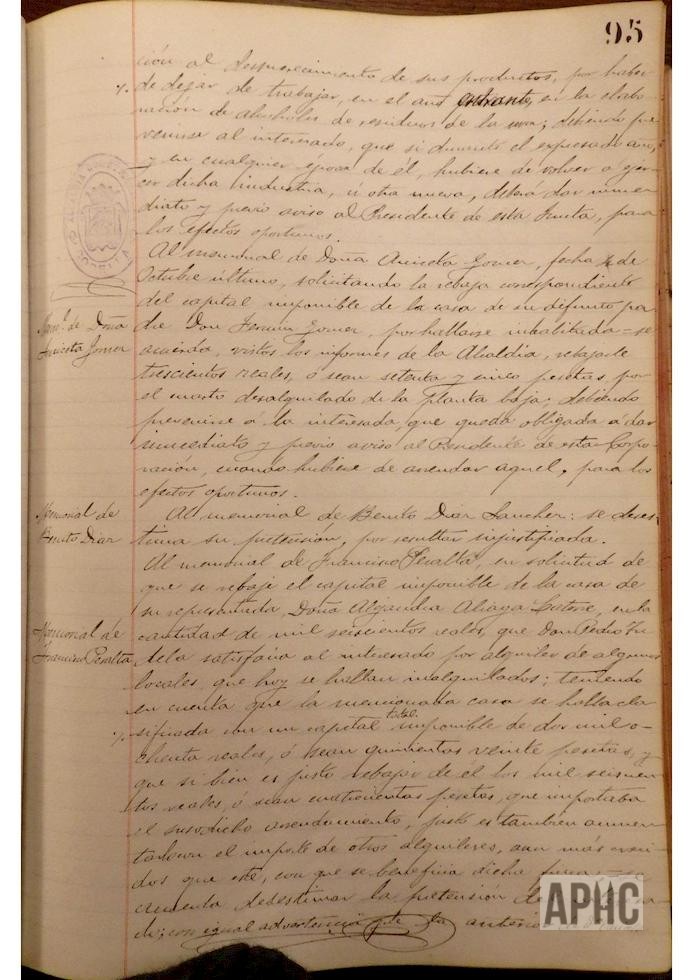 95
ción al desmerecimiento de sus productos, por haber
de dejar de trabajar, en el año entrante, en la elabo-
ración de alcoholes de residuos de la uva; debiendo pre-
venirse al interesado, que si durante el expresado año,
y en cualquier época de él, hubiere de volver a ejer-
cer dicha industria, ú otra nueva, deberá dar inme-
diato y previo aviso al Presidente de esta Junta, para
los efectos oportunos.
Al memorial de Doña Aniceta Gomer, fecha de
Octubre último, solicitando la rebaja correspondiente
del capital imponible de la casa de su difunto pa-
dre Don Fermin Gomer, por hallarse inhabilitada = se
acuerda, vistos los informes de la Alcaldia, rebajarle
trescientos reales, ó sean setenta y cinco pesetas por
el cuarto desalquilado de la planta baja; debiendo
prevenirse á la interesada, que queda obligada á dar
inmediato y previo aviso al Presidente de esta Corpo-
ración, cuando hubiere de arrendar aquel, para los
efectos oportunos.
Meml. de Doña
Aniceta Gomer
Al memorial de Benito Diar Sancher: se deses-
tima su pretensión, por resultar injustificada.
Memorial de
Benito Diar
Al memorial de Francisco Peralta, en solicitud de
que se rebaje el capital imponible de la casa de
su representada, Doña Alejandra Aliaga, en la
cantidad de mil seiscientos reales, que Don Pedro Tu-
dela satisfacia al interesado por alquiler de algunos
locales, que hoy se hallan inalquilados; teniendo
en cuenta que la mencionada casa se halla cla-
sificada con un capital total imponible de dos mil o-
chenta reales, ó sean quinientas veinte pesetas, y
que si bien es justo rebajar de él los mil seiscien-
tos reales, ó sean cuatrocientas pesetas, que importaba
el susodicho arrendamiento, justo es tambien aumen-
tar con el importe de otros alquileres, aun más creci-
dos que este, con que se beneficia dicha finca = se
acuerda desestimar la pretensión de
con igual advertencia que la
Memorial de
Francisco Peralta
APHC